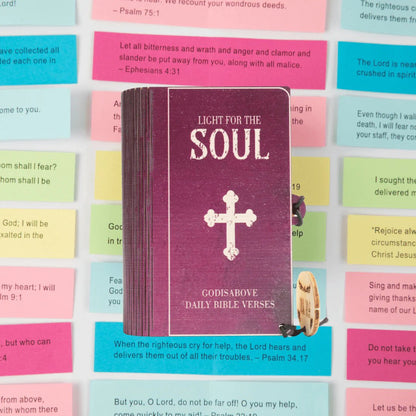 Lord!
is near. We recount your wondrous deeds.
– Psalm 75:1
the righteous
delivers them fr
ave collected all
ted each one in
Let all bitterness and wrath and anger and clamor and
slander be put away from you, along with all malice.
– Ephesians 4:31
The Lord is near
crushed in spirit
come to you.
Fa
ing in
the
Even though I walk
death, I will fear no
your staff, they com
hom shall I fear?
hom shall I be
19
I sought the
delivered m
God; I will be
exalted in the
God
in tr
help
"Rejoice alw
circumstanc
Christ Jesus
LIGHT FOR THE
SOUL
GODISABOVE
DAILY BIBLE VERSES
my heart; I will
lm 9:1
Fear
God.
help
Sing and make
giving thanks
name of our L
, but who can
:4
When the righteous cry for help, the Lord hears and
delivers them out of all their troubles. – Psalm 34.17
Do not take t
you hear you
from above,
with whom there
But you, O Lord, do not be far off! O you my help,
come quickly to my aid! – Psalm 22:19